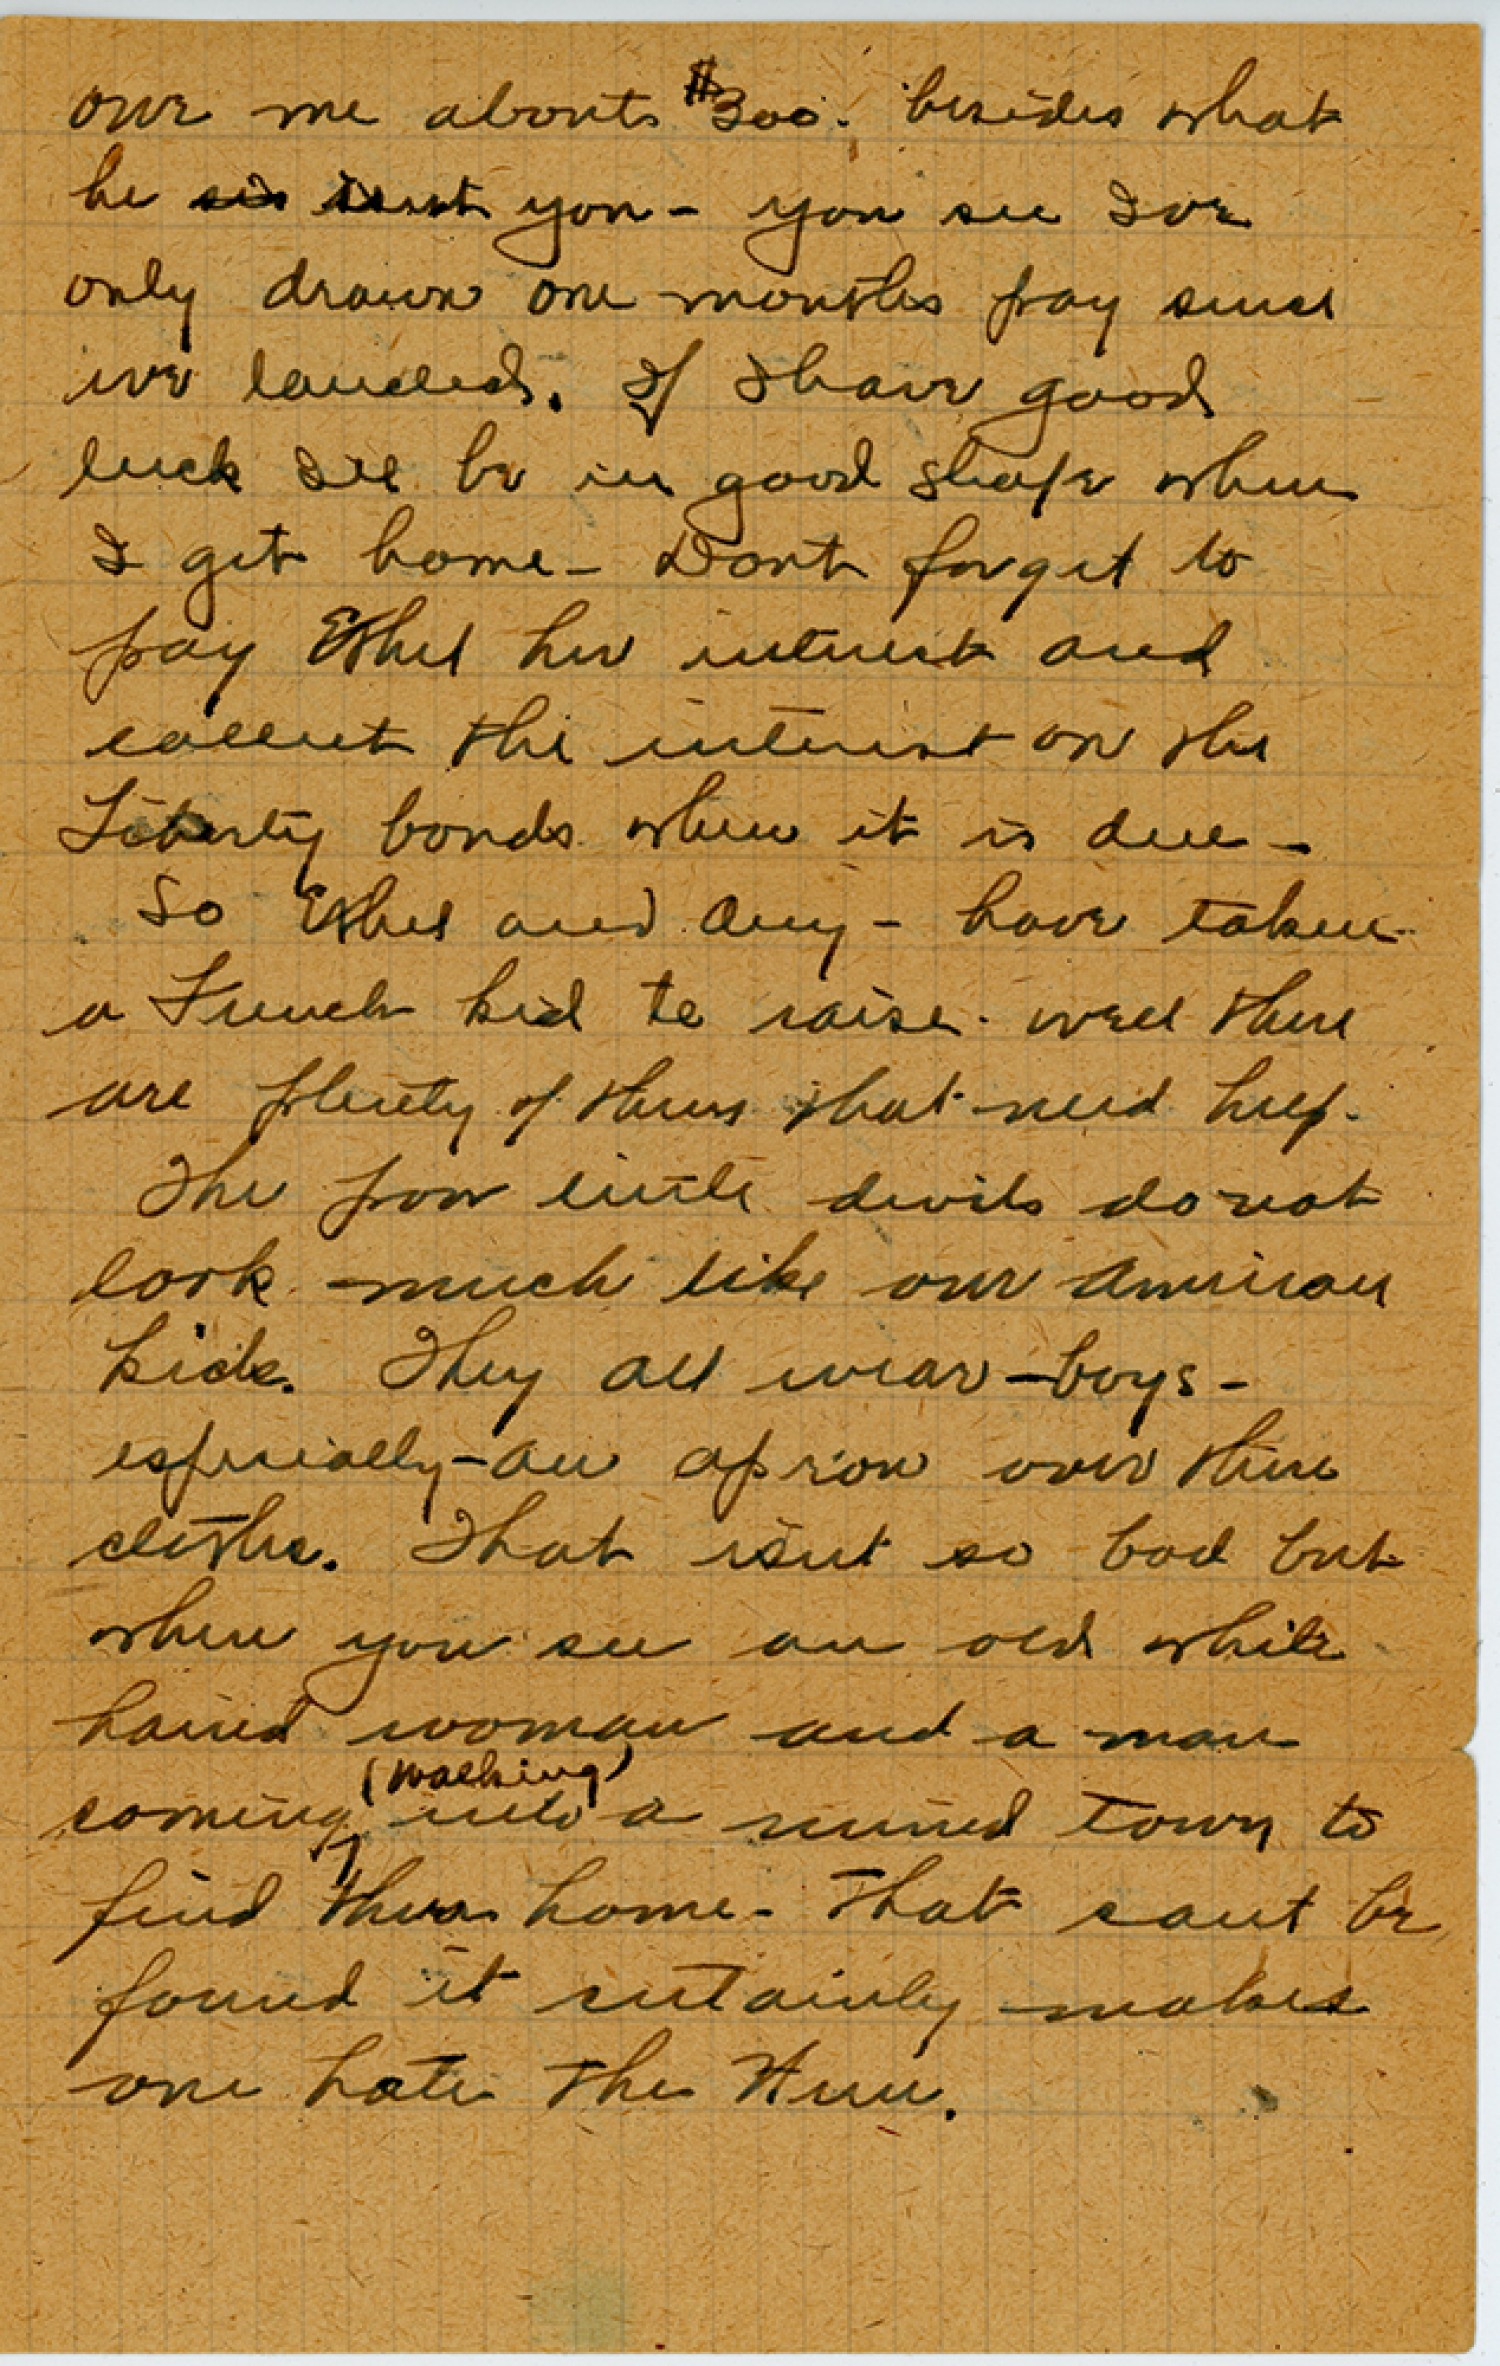 owe me about $300. besides what
he sent you - you see Ive
only drawn one months pay since
we landed. If I have good
luck Ill be in good shape when
I get home - Dont forget to
pay Ethel her interest and
collect the interest on the
Liberty bonds when it is due -
So Ethel and - have taken
a French kid to raise. well there
are plenty of them that need help.
The poor little devils do not
look much like our American
kids. They all wear - boys -
especially - an apron over their
clothes. That isnt so bad but
when you see an old white
haired woman and a man
coming (walking) into a ruined town to
find their home - that cant be
found it certainly makes
one hate the Hun.